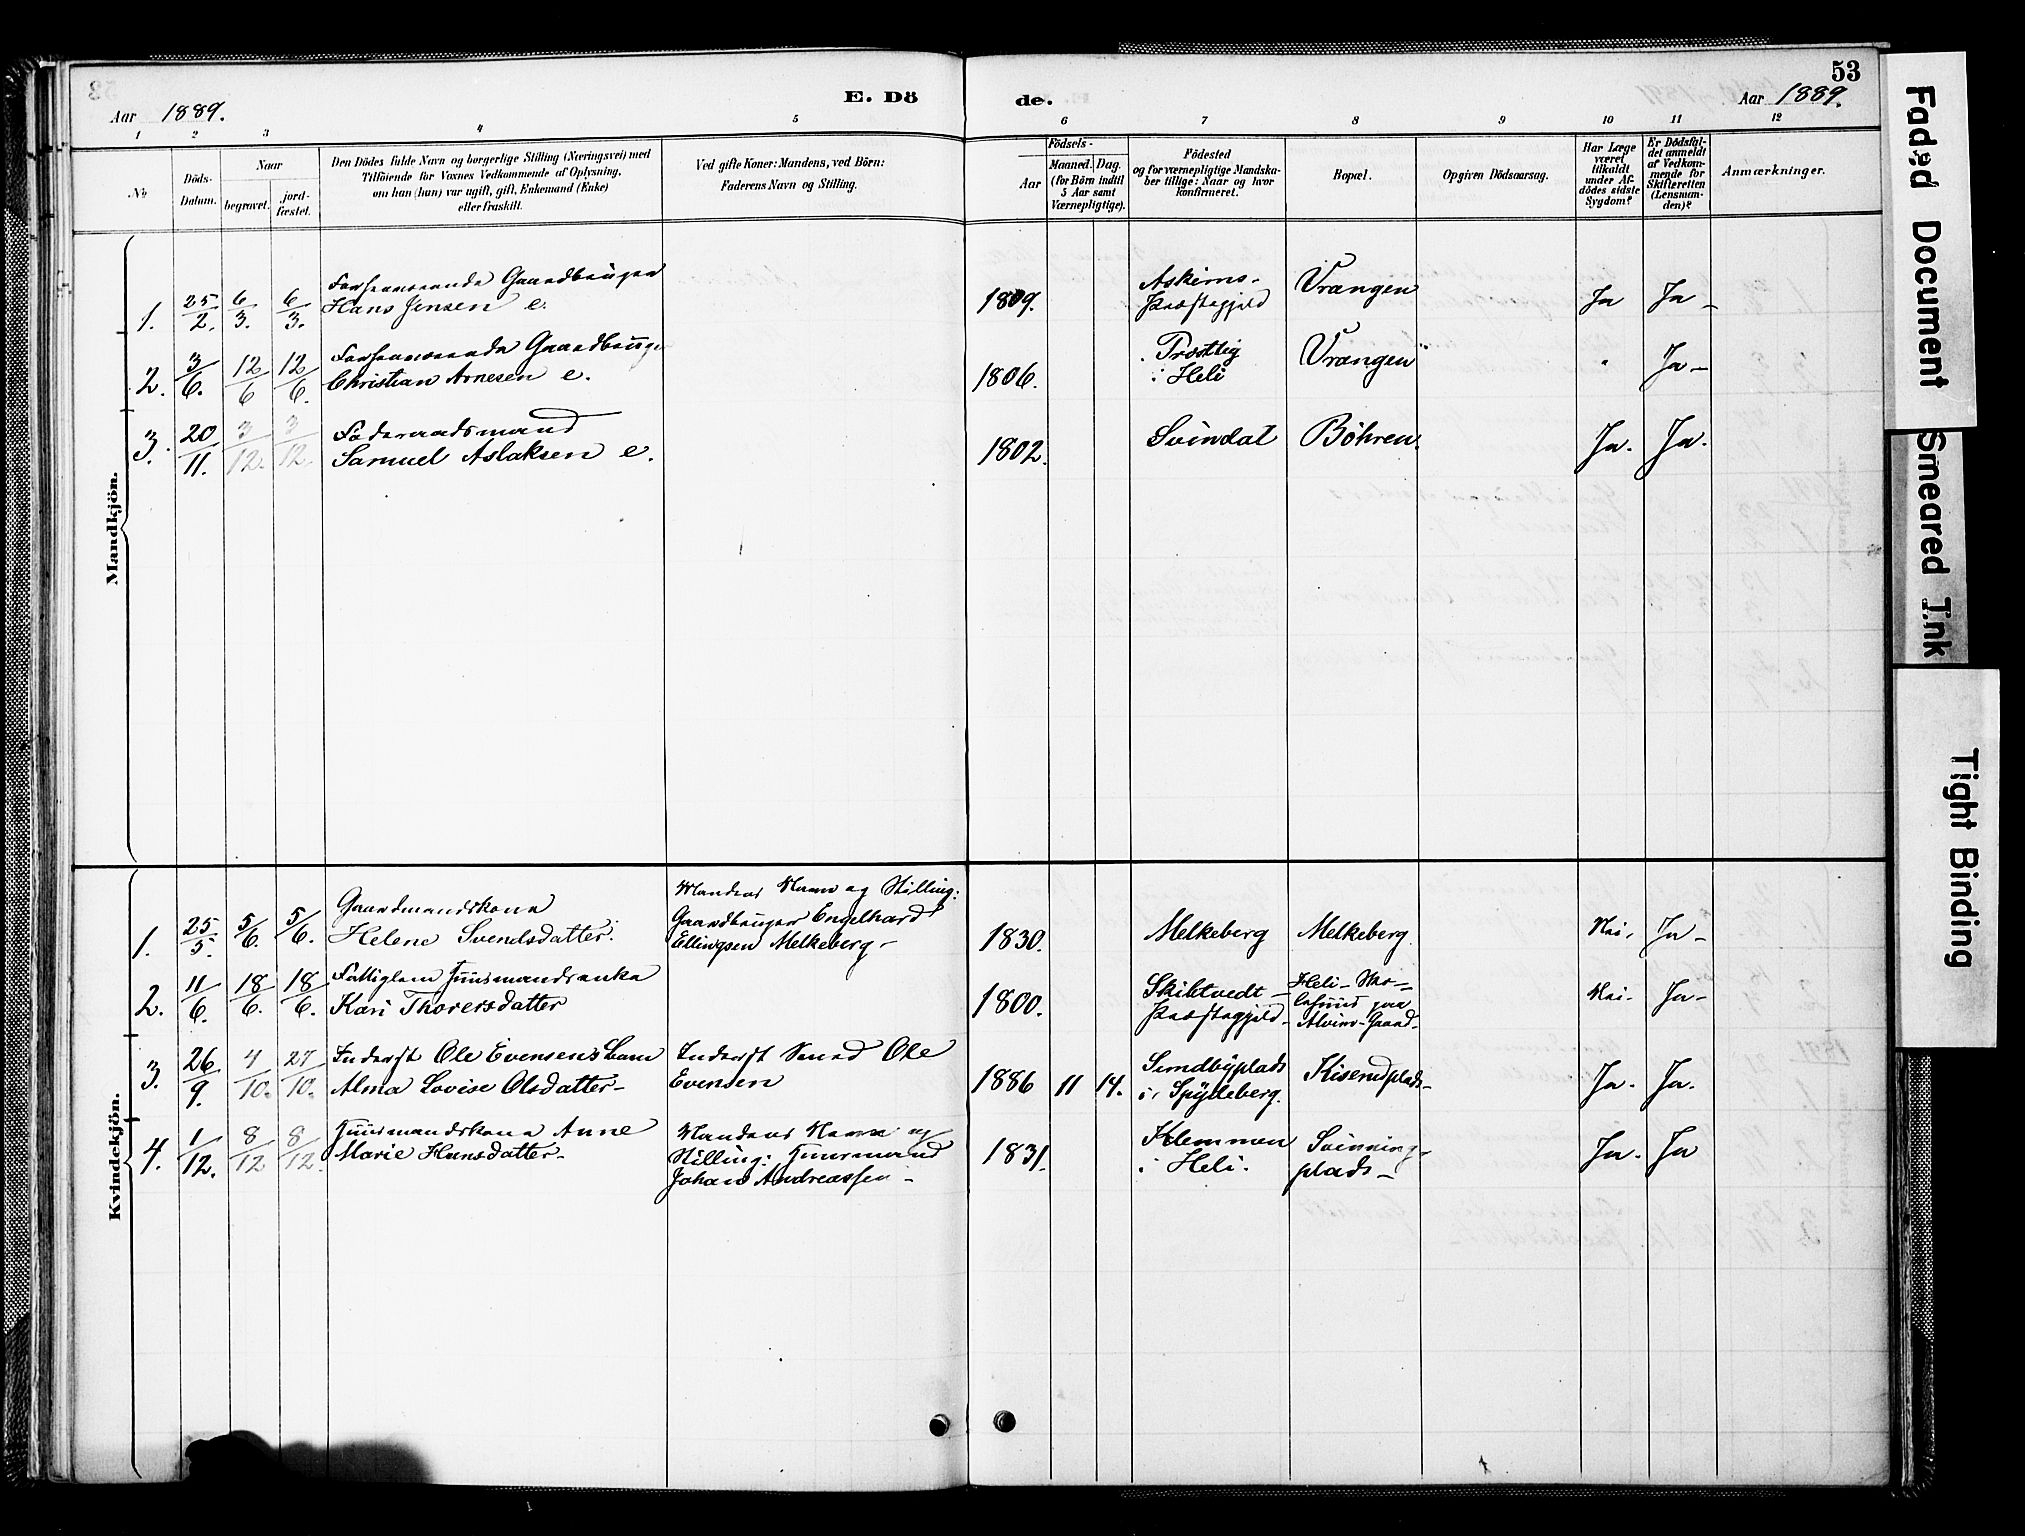 53
Aar 1889.
E. Dö
de.
Aar 1889.
1 2 3 4 5 6 7 8 9 10 11 12
No
Döds-Datum.
Naar
begravet.
jord-fæstet.
Den Dödes fulde Navn og borgerlige Stilling (Næringsvei) med
Tilföiende for Voxnes Vedkommende af Oplysning,
om han (hun) var ugift, gift, Enkemand (Enke)
eller fraskilt.
Ved gifte Koner: Mandens, ved Börn:
Faderens Navn og Stilling.
Födsels-
Aar
Maaned. Dag.
(for Börn indtil
5 Aar samt
Værnepligtige).
Födested
og for værnepligtige Mandska-
ber tillige: Naar og hvor
konfirmeret.
Bopæl.
Opgiven Dödsaarsag.
Har Læge
været
tilkaldt
under Af-
dödes sidste
Sygdom?
Er Dödsfal-
det anmeldt
af Vedkom-
mende for
Skifteretten
(Lensman-
den)?
Anmærkninger.
Mandkjön.
1. 25/2. 6/3. 6/3. Forhenværende Gaardbruger
Hans Jensen e. 1809. Askims-
Præstegjeld Vrangen Ja Ja-
2. 3/6. 12/6 12/6. Forhenværende Gaardbruger
Christian Arnesen e. 1806. Prosttig
i Heli Vrangen " Ja-
3. 20/11. 3/12. 3/12. Föderaadsmand
Samuel Aslaksen e. 1802. Svindal Böhren. Ja. Ja.
Kvindekjön.
1. 25/5. 5/6. 5/6. Gaardmandskone
Helene Svendsdatter. Mandens Navn og Stilling:
Gaardbruger Engelhard
Ellingsen Melkeberg- 1830. Melkeberg Melkeberg Nei. Ja-
2. 11/6. 18/6. 18/6. Fattiglem Huusmandsenke
Kari Thorersdatter 1800. Skibtvedt-
Præstegjeld- Heli-
paa
Gaard- Nei. Ja-
3. 26/9. 4/10. 27/10. Inderst Ole Evensens Barn
Alma Lovise Olsdatter- Inderst Ole
Evensen 1886 11 14. Sundbyplads
i Spydeberg. Kiserudplads- Ja. Ja.
4. 1/12. 8/12 8/12. Huusmandskone Anne
Marie Hansdatter- Mandens Navn og
Stilling: Huusmand
Johan Andreassen- 1831. Klemmen
i Heli. Svinning-
plads- Ja. Ja
Faded Document
Smeared Ink
Tight Binding